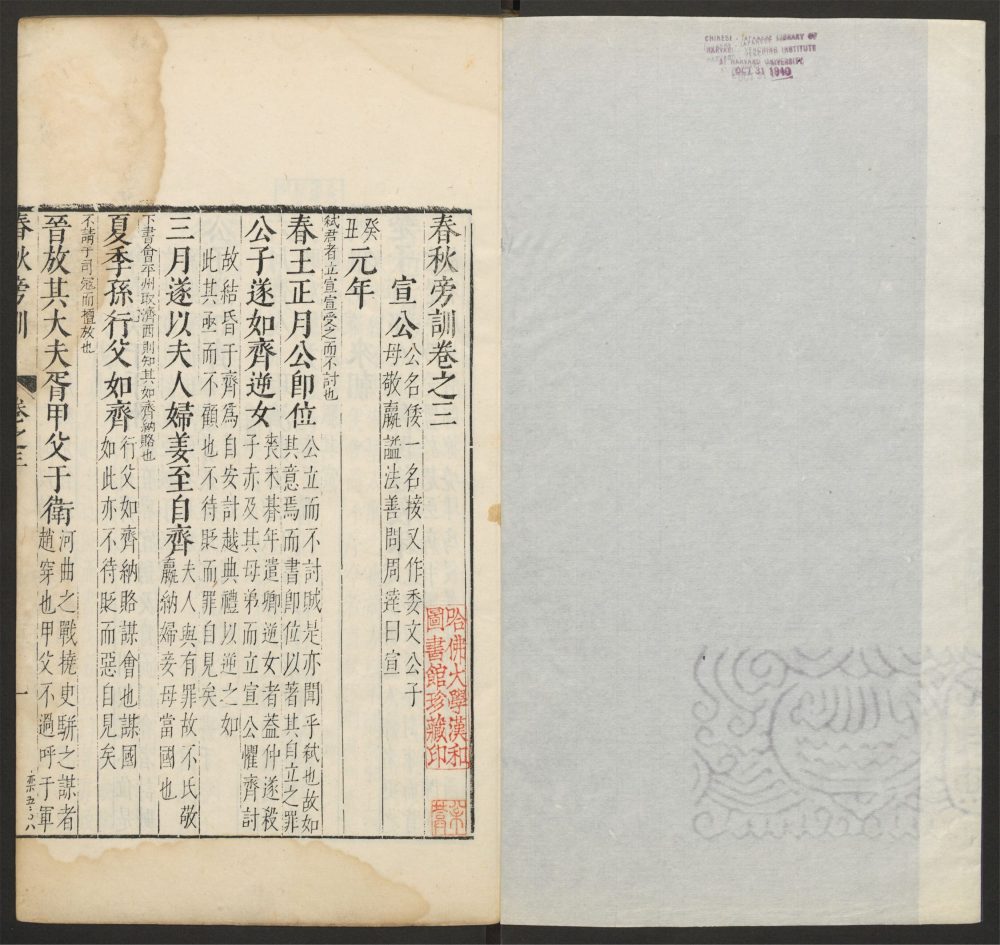 CHINESE - JAPANESE LIBRARY OF
HARVARD - YENCHING INSTITUTE
AT HARVARD UNIVERSITY
OCT 31 1940
春秋旁訓卷之三
哈佛大學漢和
圖書館珍藏印
宣公
公名倭一名接又作委文公子
母敬嬴謚法善問周達曰宣
癸丑
元年
弑君者立宣宣受之而不討也
春王正月公即位
公立而不討賊是亦聞乎弑也故如
其意焉而書即位以著其自立之罪
公子遂如齊逆女
喪未朞年遣卿逆女者葢仲遂殺
子赤及其母弟而立宣公懼齊討
故結昏于齊爲自安計越典禮以逆之如
此其亟而不顧也不待貶而罪自見矣
三月遂以夫人婦姜至自齊
夫人與有罪故不氏敬
嬴納婦妾母當國也
下書會平州取濟西則知其如齊納賂也
夏季孫行父如齊
行父如齊納賂謀會也謀國
如此亦不待貶而惡自見矣
不請于司冦而擅放也
晉放其大夫胥甲父于衛
河曲之戰撓史駢之謀者
趙穿也甲父不過呼于軍
春秋旁訓
卷之三
一